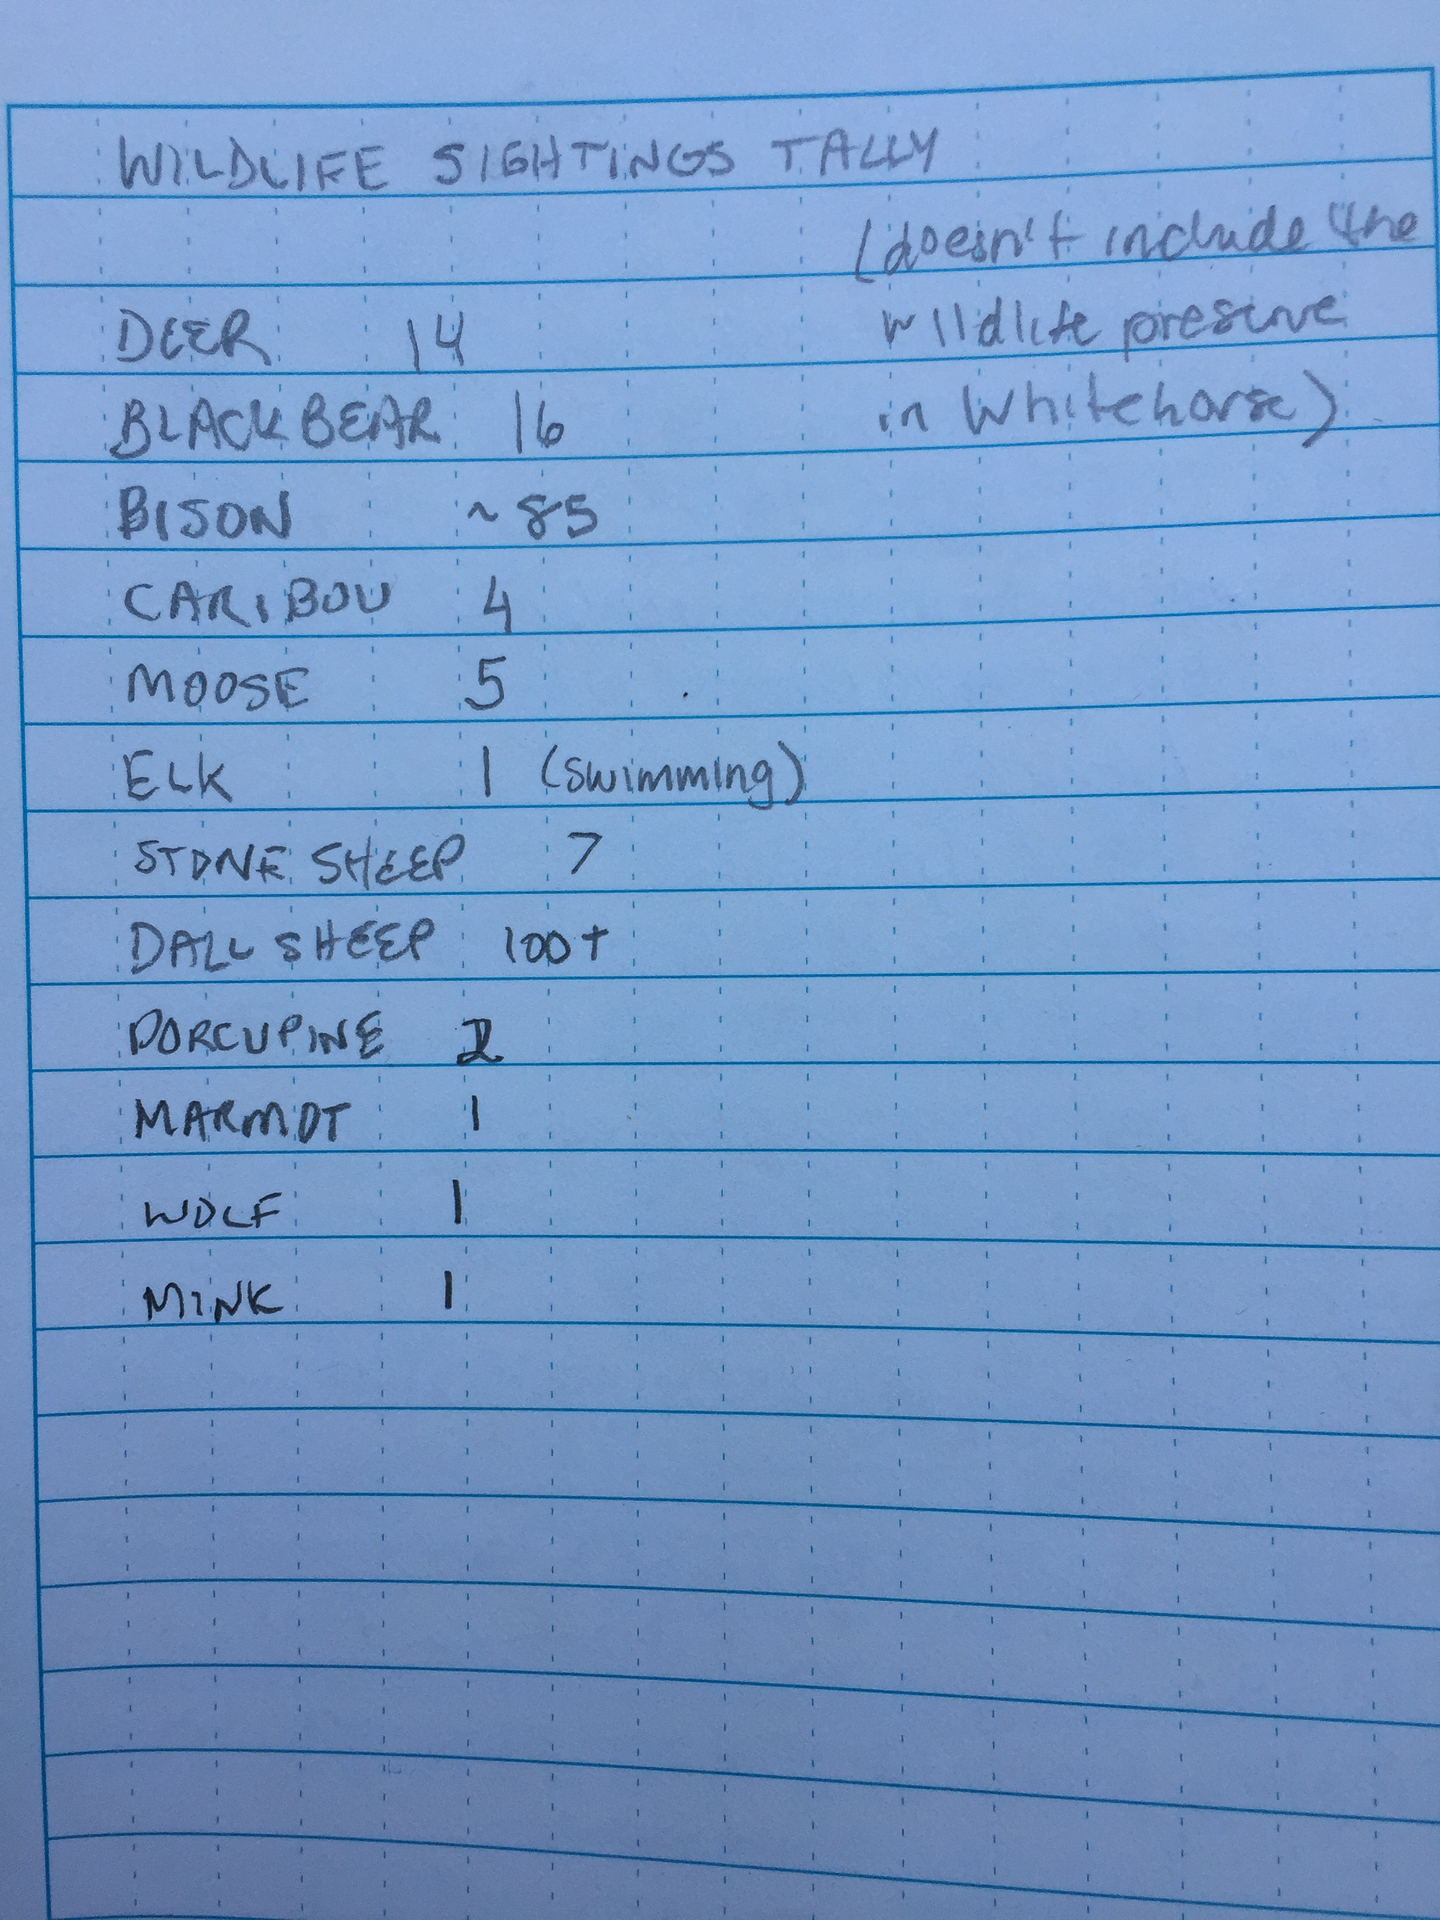 WILDLIFE SIGHTINGS TALLY
(doesn't include the
wildlife preserve
in Whitehorse)
DEER 14
BLACK BEAR 16
BISON ~85
CARIBOU 4
MOOSE 5
ELK 1 (swimming)
STONE SHEEP 7
DALL SHEEP 100+
PORCUPINE 2
MARMOT 1
WOLF 1
MINK 1